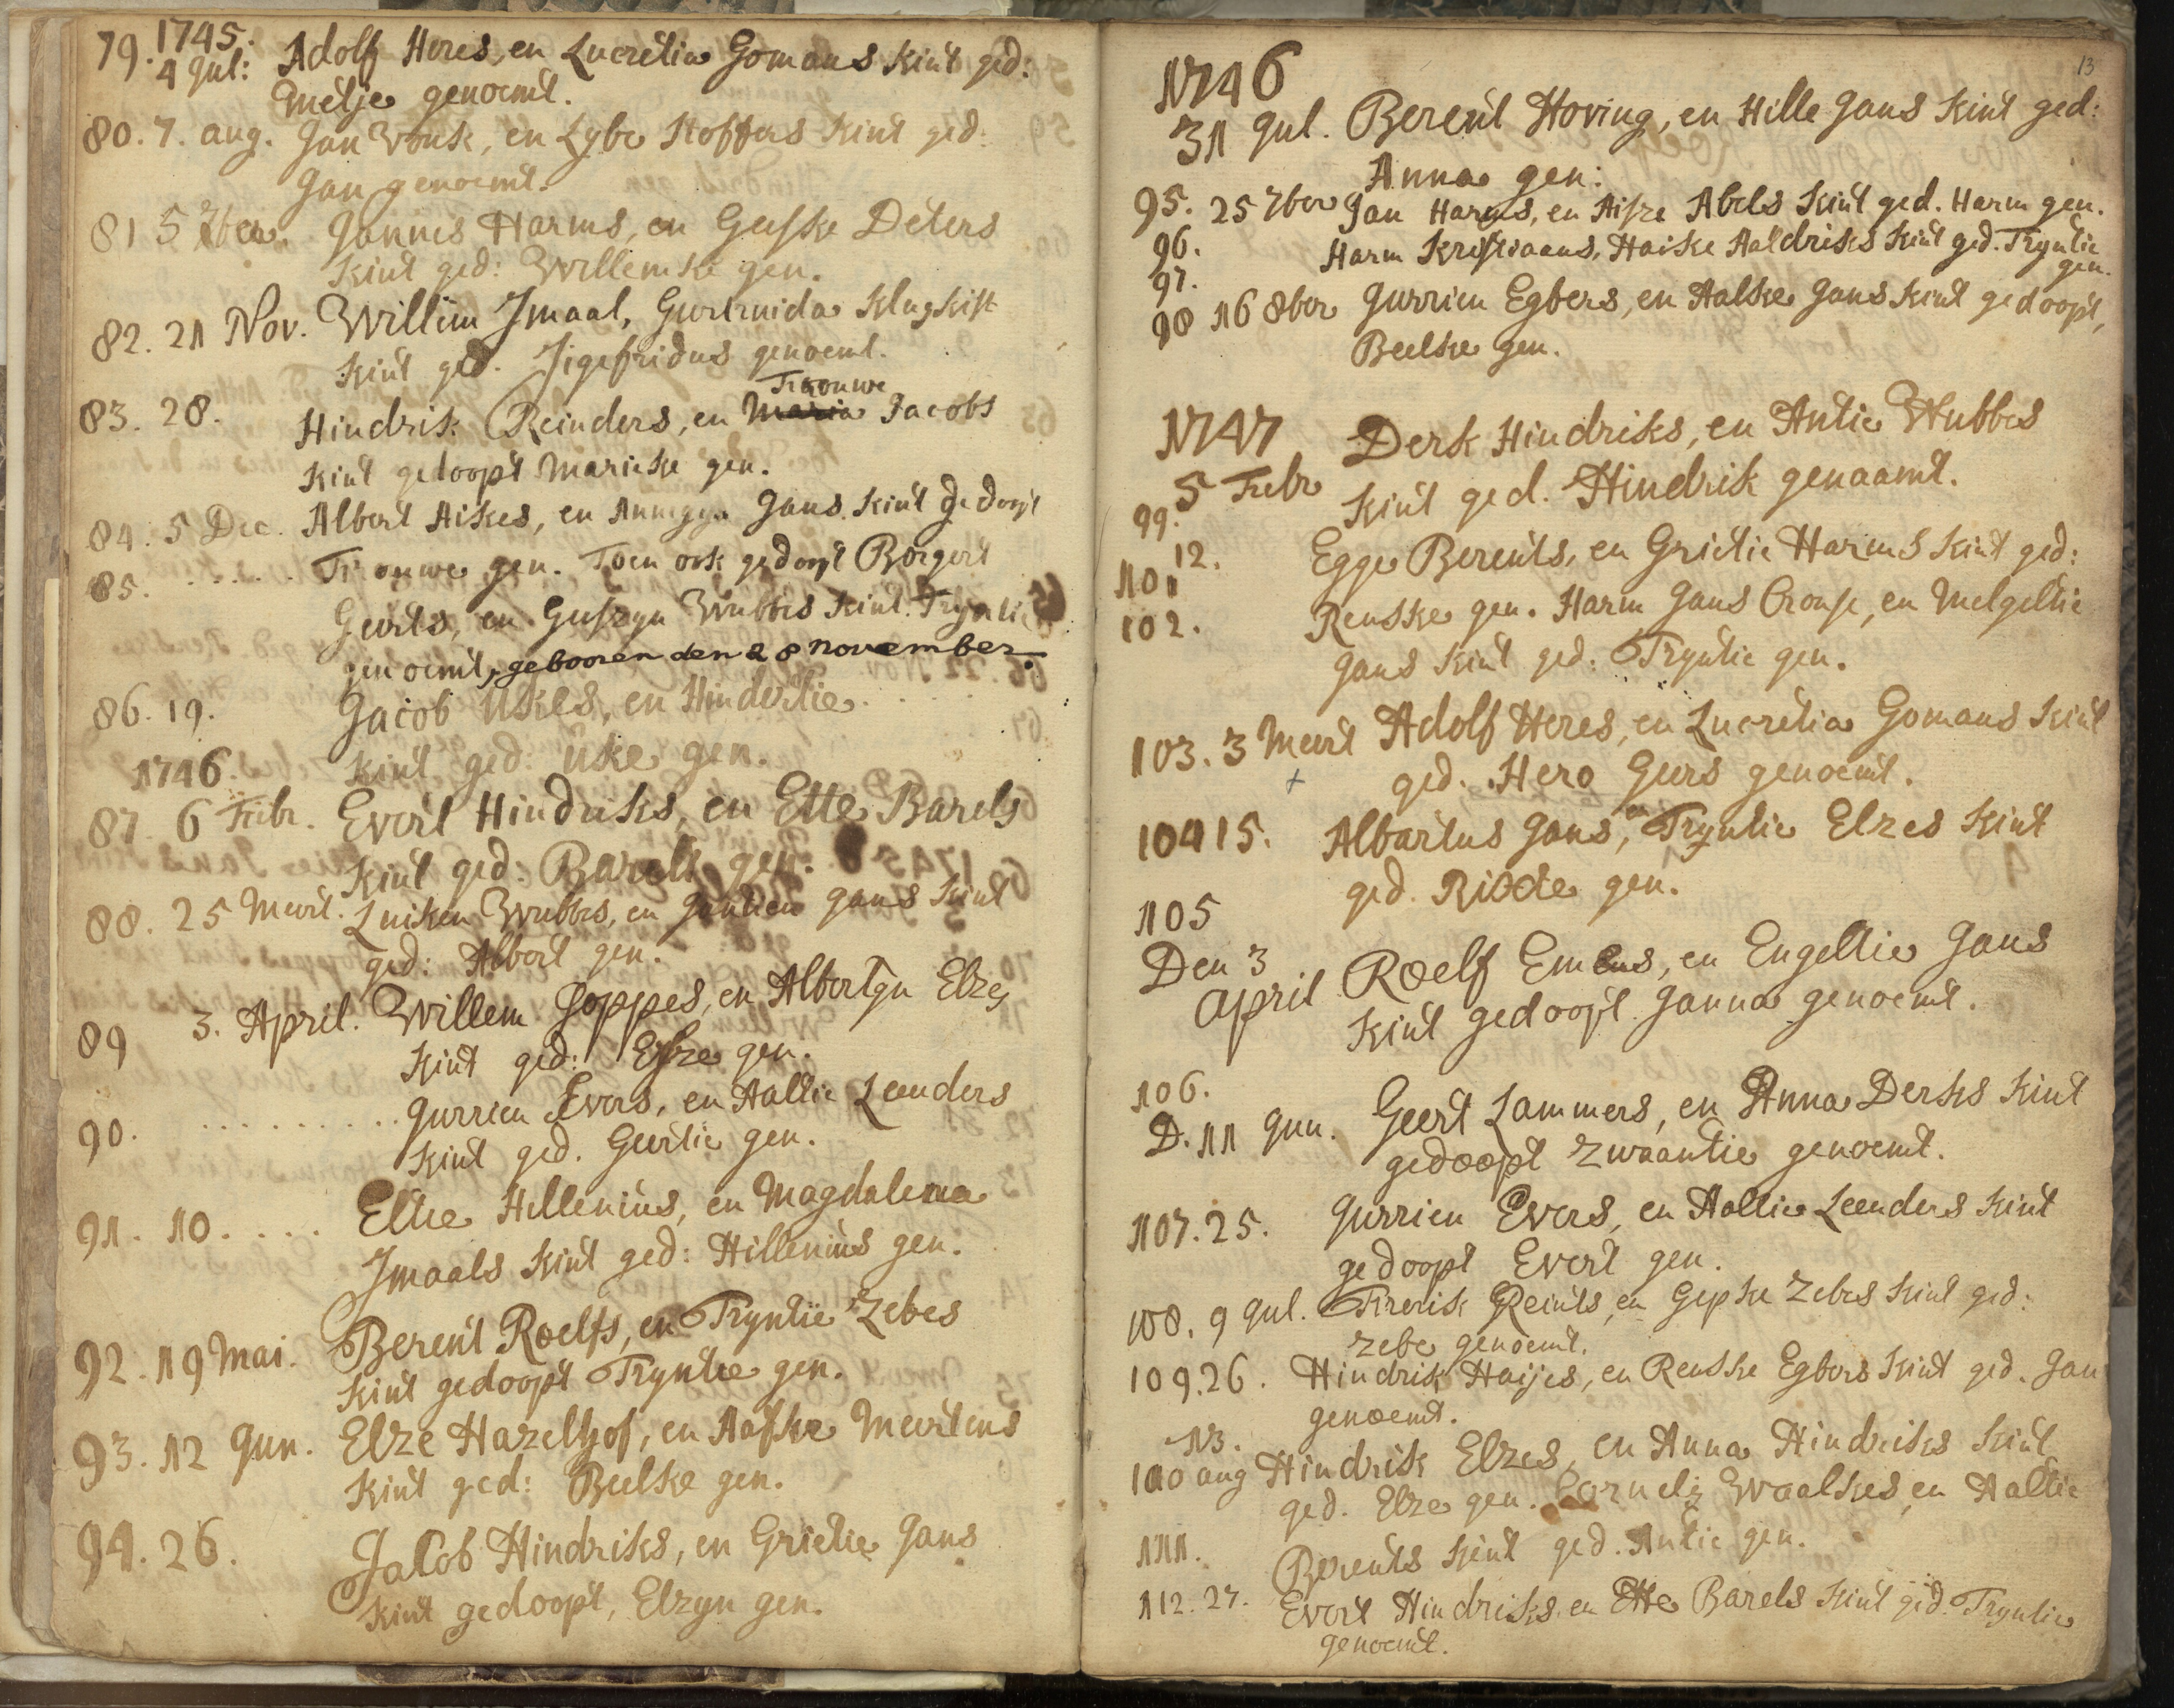 79. 1745.
4 Jul: Adolf Heres, en Lucretia Gomans kint ged:
Metje genoemt.
80. 7. aug. Jan Vonk, en Lybe Stoffers kint ged.
Jan genoemt.
81 5 Jannes Harms, en Geeske Deters
kint ged: Willemke gen.
82. 21 Nov. Willem Imaal, Geertruida
kint ged. Sigefridus genoemt.
Trouwe
83. 28. Hindrik Reinders, en Maria Jacobs
kint gedoopt Marieke gen.
84. 5 Dec. Albert Aikes, en Annegyn Jans kint gedoopt
85. . . . . . Trouwe gen. Toen ook gedoopt Borgert
Geerts, en Geeszyn Wubbes kint. Tryntie
genoemt, gebooren den 28 november.
86. 19. Jacob Ukes, en Hindertie . . .
kint ged: Uke gen.
1746.
87. 6 Febr. Evert Hindriks, en Ette Barels
kint ged: Barelt gen.
88. 25 Meert. Luiken Wubbes, en Jantien Jans kint
ged: Albert gen.
89 3. April. Willem Joppes, en Albertyn Elzes
kint ged: Elze gen.
90. . . . . . . . . . . Jurrien Evers, en Aaltie Leenders
kint ged. Geertie gen.
91. 10. . . . Eltie Hillenius, en Magdalena
Imaals kint ged: Hillenius gen.
92. 19 Mai. Berent Roelfs, en Tryntie Zebes
kint gedoopt Tryntie gen.
93. 12 Jun. Elze Hazelhof, en Aafke Meertens
kint ged: Beelke gen.
94. 26. Jacob Hindriks, en Grietie Jans
kint gedoopt, Elzyn gen.
13
1746
31 Jul. Berent Hoving, en Hille Jans kint ged:
Anna gen:
95. 25 7ber Jan Harms, en Abels kint ged. Harm gen.
96. Harm Kristiaans, Haike Aaldriks kint ged. Tryntie
97. gen.
98 16 8ber Jurrien Egbers, en Aalke Jans kint gedoopt,
Beelke gen.
1747 Derk Hindriks, en Antie Wubbes
99. 5 Febr kint ged. Hindrik genaamt.
12. Egge Berents, en Grietie Harms kint ged:
101
102. Renske gen. Harm Jans Cronje, en Melgeltie
Jans kint ged: Tryntie gen.
103. 3 Meert Adolf Heres, en Lucretia Gomans kint
ged. Hero Geers genoemt.
104 15. Albartus Jans, en Tryntie Elzes kint
ged. Risde gen.
105
Den 3
April Roelf Emens, en Engeltie Jans
kint gedoopt Janna genoemt.
106.
D. 11 Jun. Geert Lammers, en Anna Derks kint
gedoopt Zwaantie genoemt.
107. 25. Jurrien Evers, en Aaltie Leenders kint
gedoopt Evert gen.
108. 9 Jul. Frerik Reints, en Gepke Zebes kint ged:
Zebe genoemt.
109. 26. Hindrik Haijes, en Renske Egbers kint ged. Jan
genoemt.
13.
110 aug Hindrik Elzes, en Anna Hindriks kint
ged. Elze gen. Cornelis Waalkes, en Aaltie
111. Berents kint ged. Antie gen.
112. 27. Evert Hindriks en Ette Barels kint ged. Tryntie
genoemt.